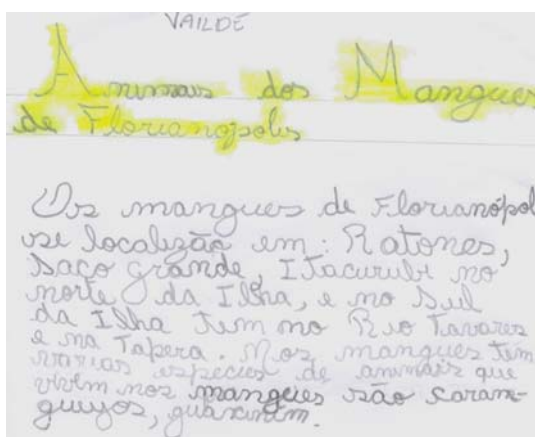 VAILDE
Animais dos Mangues
de Florianópolis
Os mangues de Florianópol
se localizão em: Ratones,
Saco grande, Itacurubi no
norte da Ilha, e no Sul
da Ilha tem no Rio Tavares
e na Tapera. Nos mangues tem
varias especies de animais que
vivem nos mangues são caram-
guijos, guaxinim.